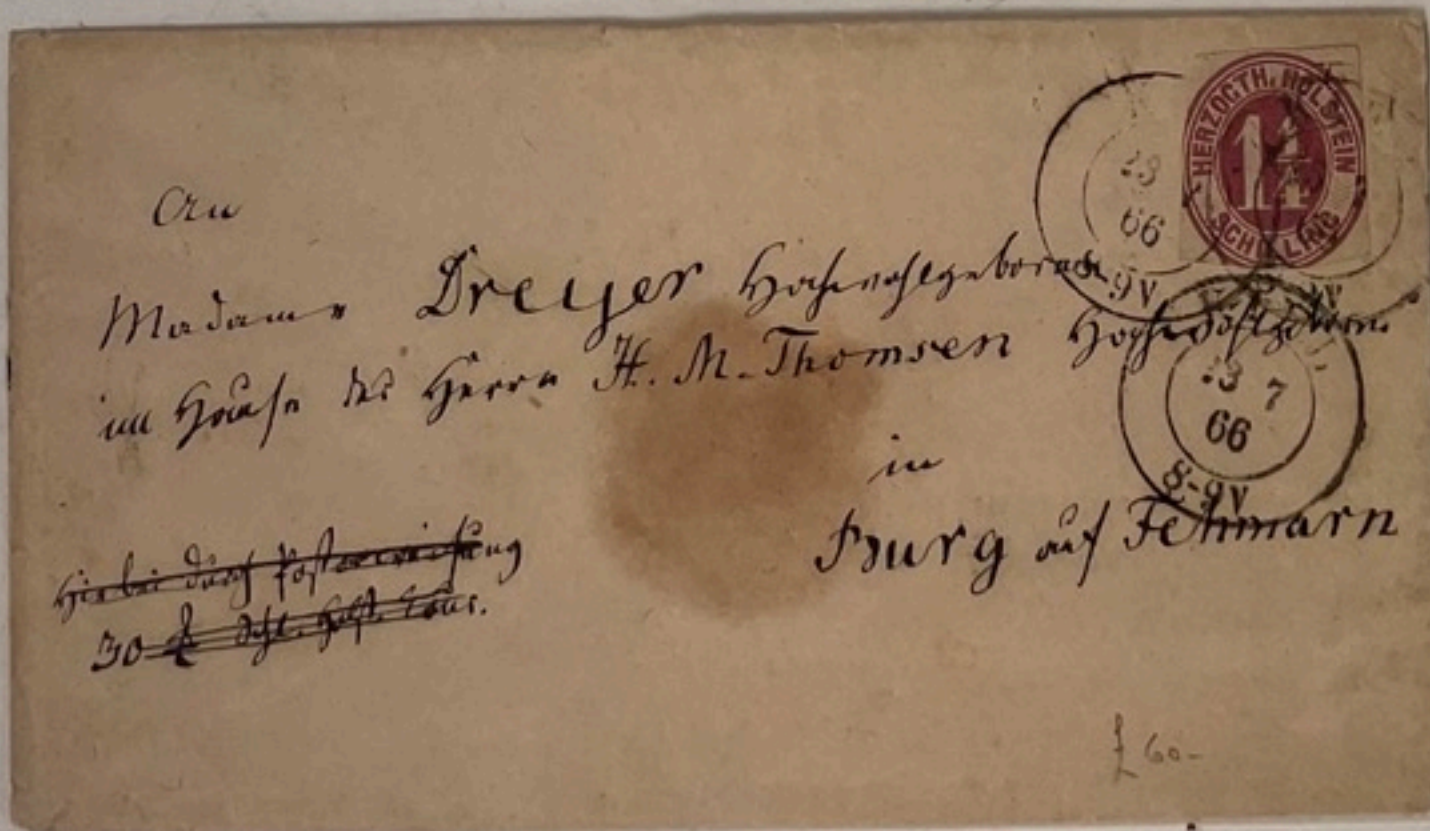 HERZOGTH. HOLSTEIN
1¼
SCHILLING
23
66
8-9V
An
Madame Dreyer Hochwohlgeboren
im Hause des Herrn H. M. Thomsen Hochwohlgeboren
23 7
66
8-9V
in
Burg auf Fehmarn
Hiebei durch Postanweisung
30 Schl. Holst. Cour.
£60-